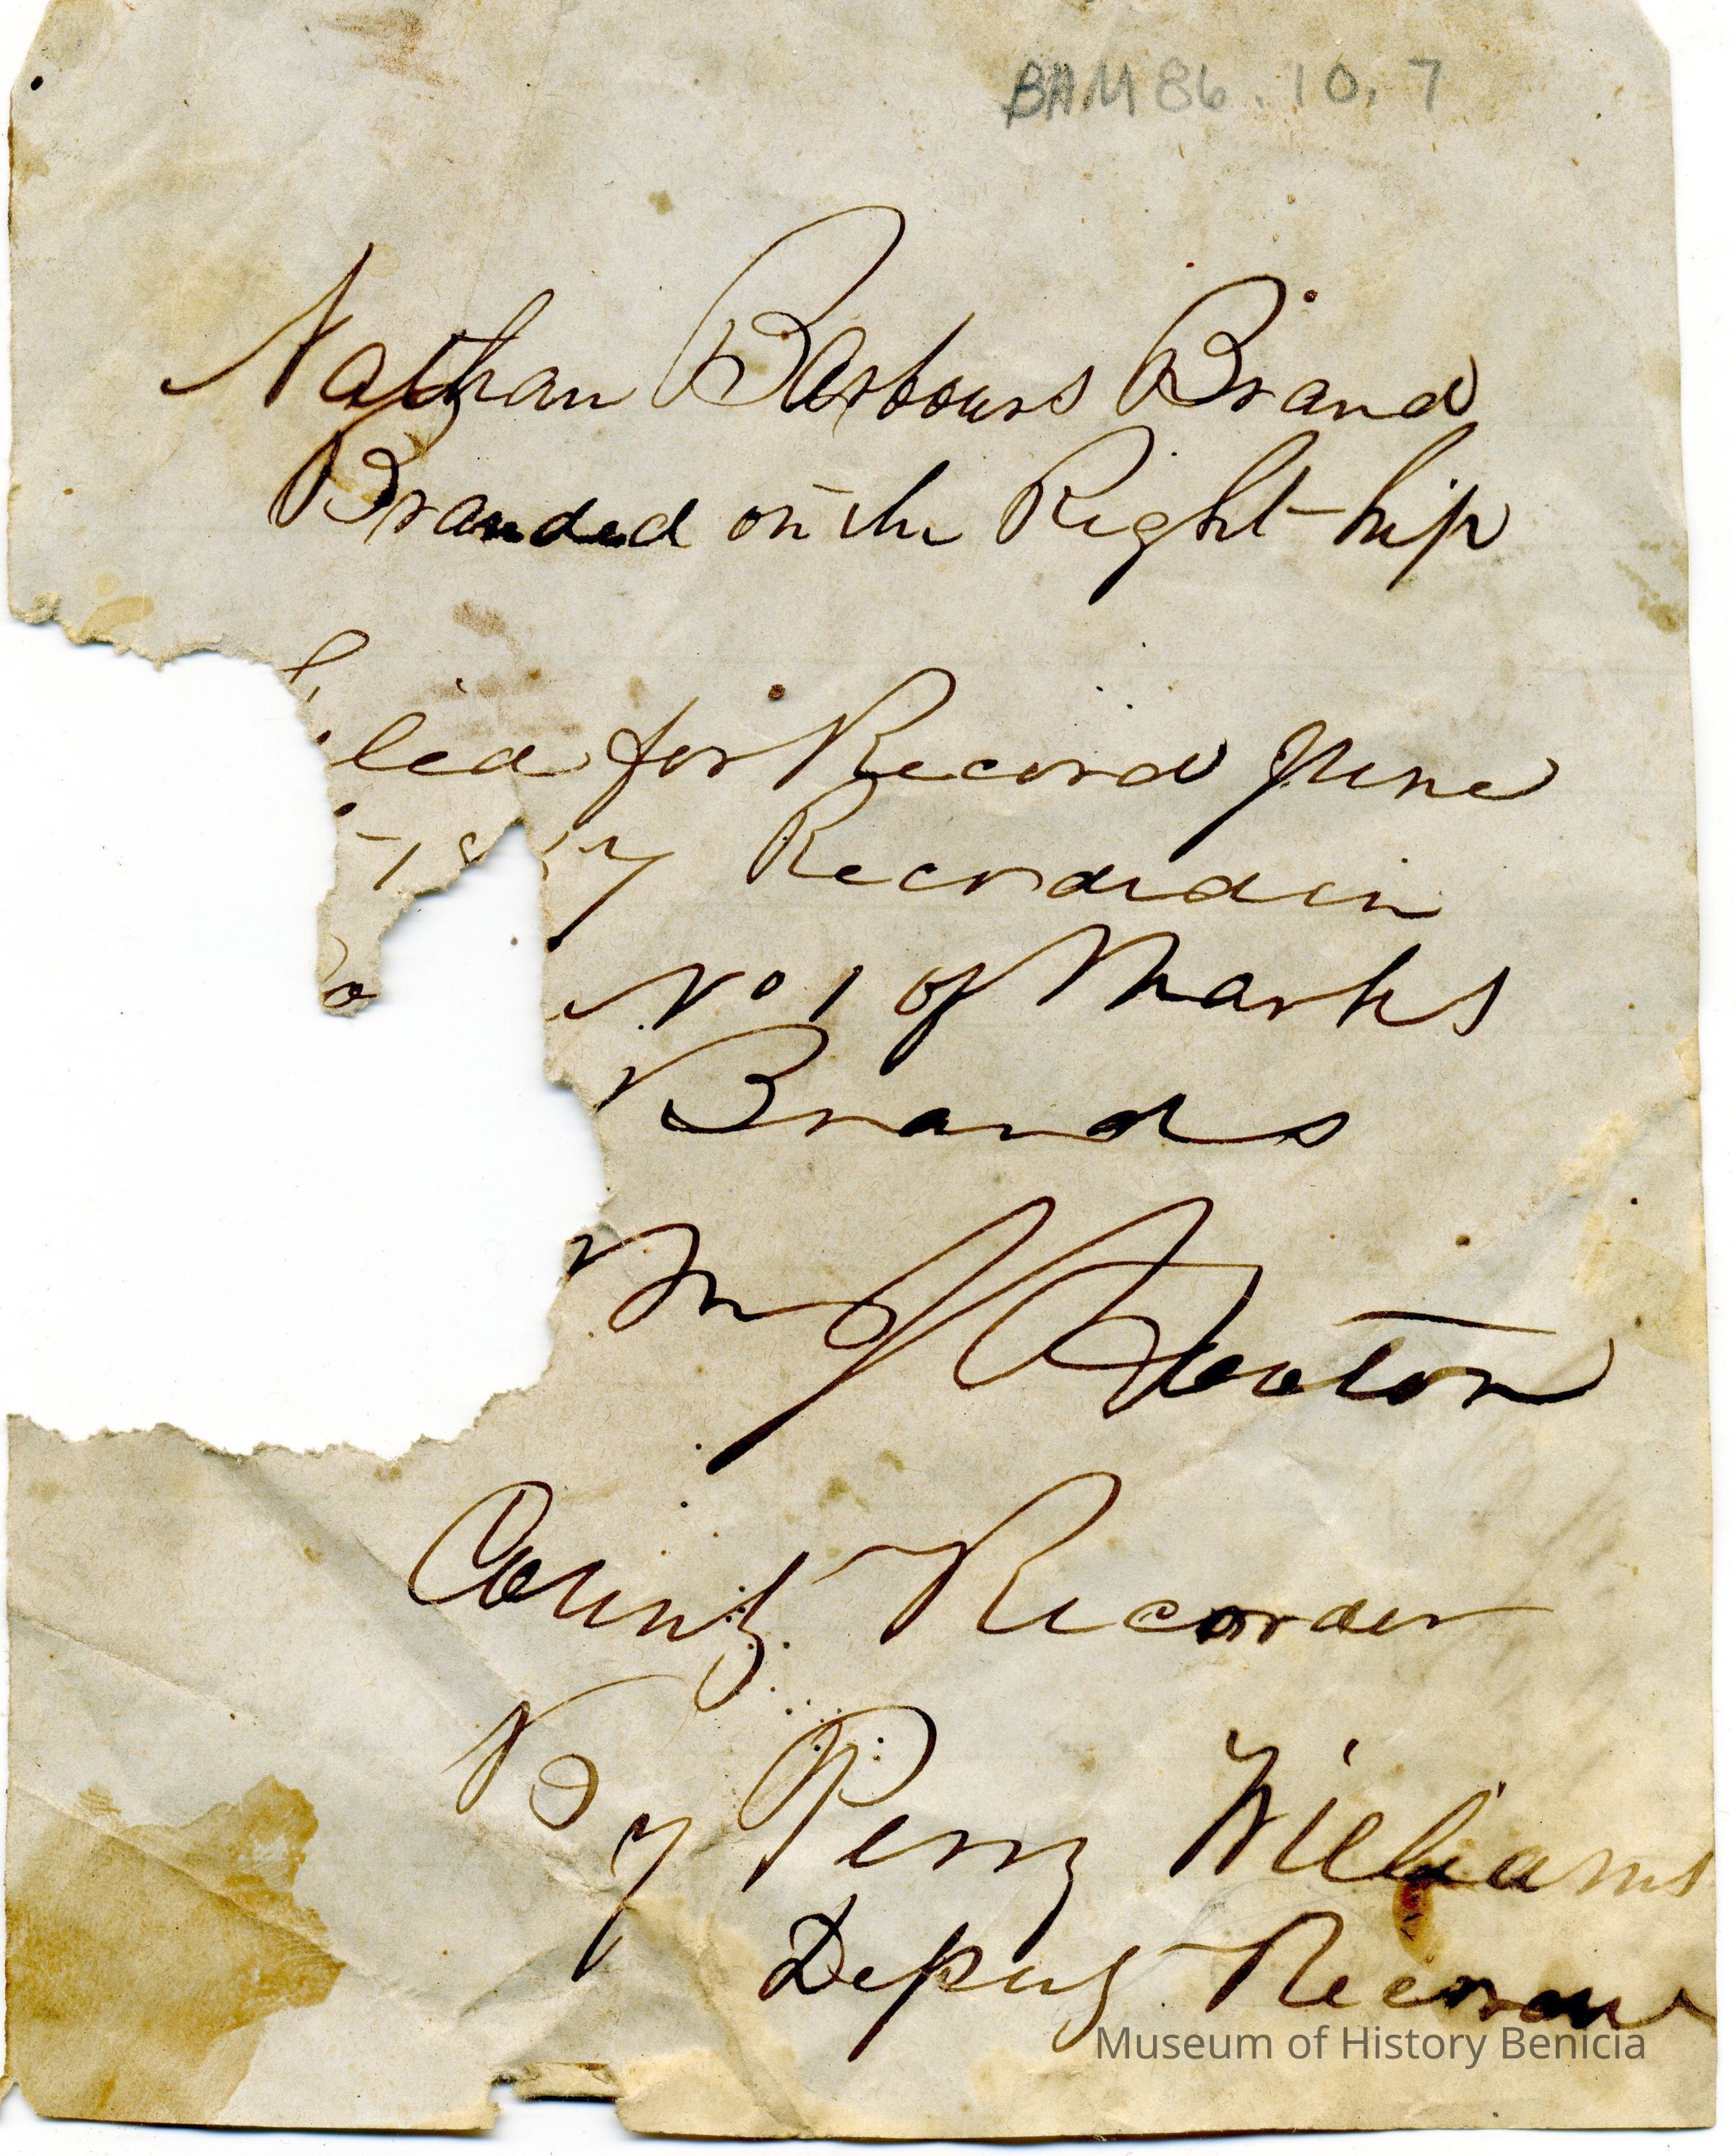 BAM 86.10.7
Nathan Barbours Brand
Branded on the Right hip
iled for Record June
Recorded in
No 1 of Marks
Brands
Wm J
County Recorder
By Perry Williams
Deputy Recorder
Museum of History Benicia